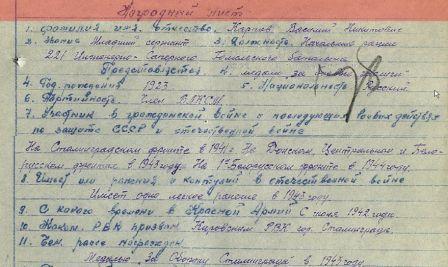 Наградной лист
1. Фамилия имя, отчество. Карпов Василий Никитович
2. Звание Младший сержант 3. Должность Начальник рации
221 Инженерно-Саперного батальона
Представляется к медали за
4. Год рождения 1923 5. Национальность Русский
6. Партийность Член ВЛКСМ
7. Участник в гражданской войне и последующих боевых действиях
по защите СССР и отечественной войне
На Сталинградском фронте в 1942 На Донском, Центральном и Бело-
русском фронтах в 1943 году На 1 Белорусском фронте в 1944 году.
8. Имеет ли ранения и контузии в отечественной войне
Имеет одно легкое ранение в 1943 году.
9. С какого времени в Красной Армии С июля 1942 года.
10. Каким РВК призван Кировским РВК гор. Сталинграда.
11. Чем ранее награжден.
Медалью "За Оборону Сталинграда" в 1943 году